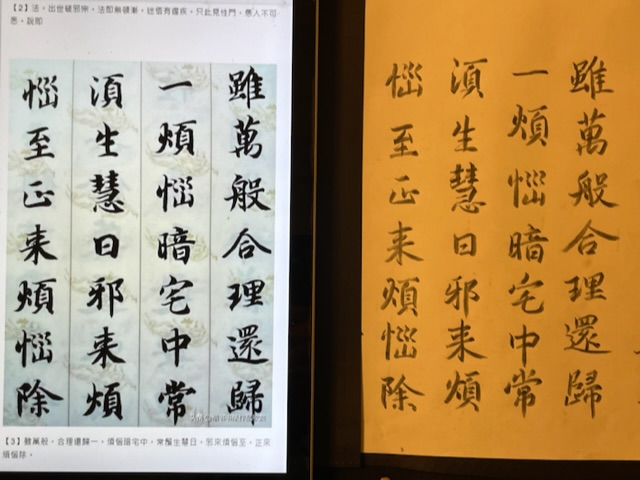 【2】法，出世破邪宗。法即無頓漸，迷悟有遲疾。只此見性門，愚人不可
悉。說即
雖萬般合理還歸
一煩惱暗宅中常
須生慧日邪来煩
惱至正来煩惱除
【3】雖萬般，合理還歸一。煩惱暗宅中，常須生慧日。邪來煩惱至，正來
煩惱除。
雖萬般合理還歸
一煩惱暗宅中常
須生慧日邪来煩
惱至正来煩惱除